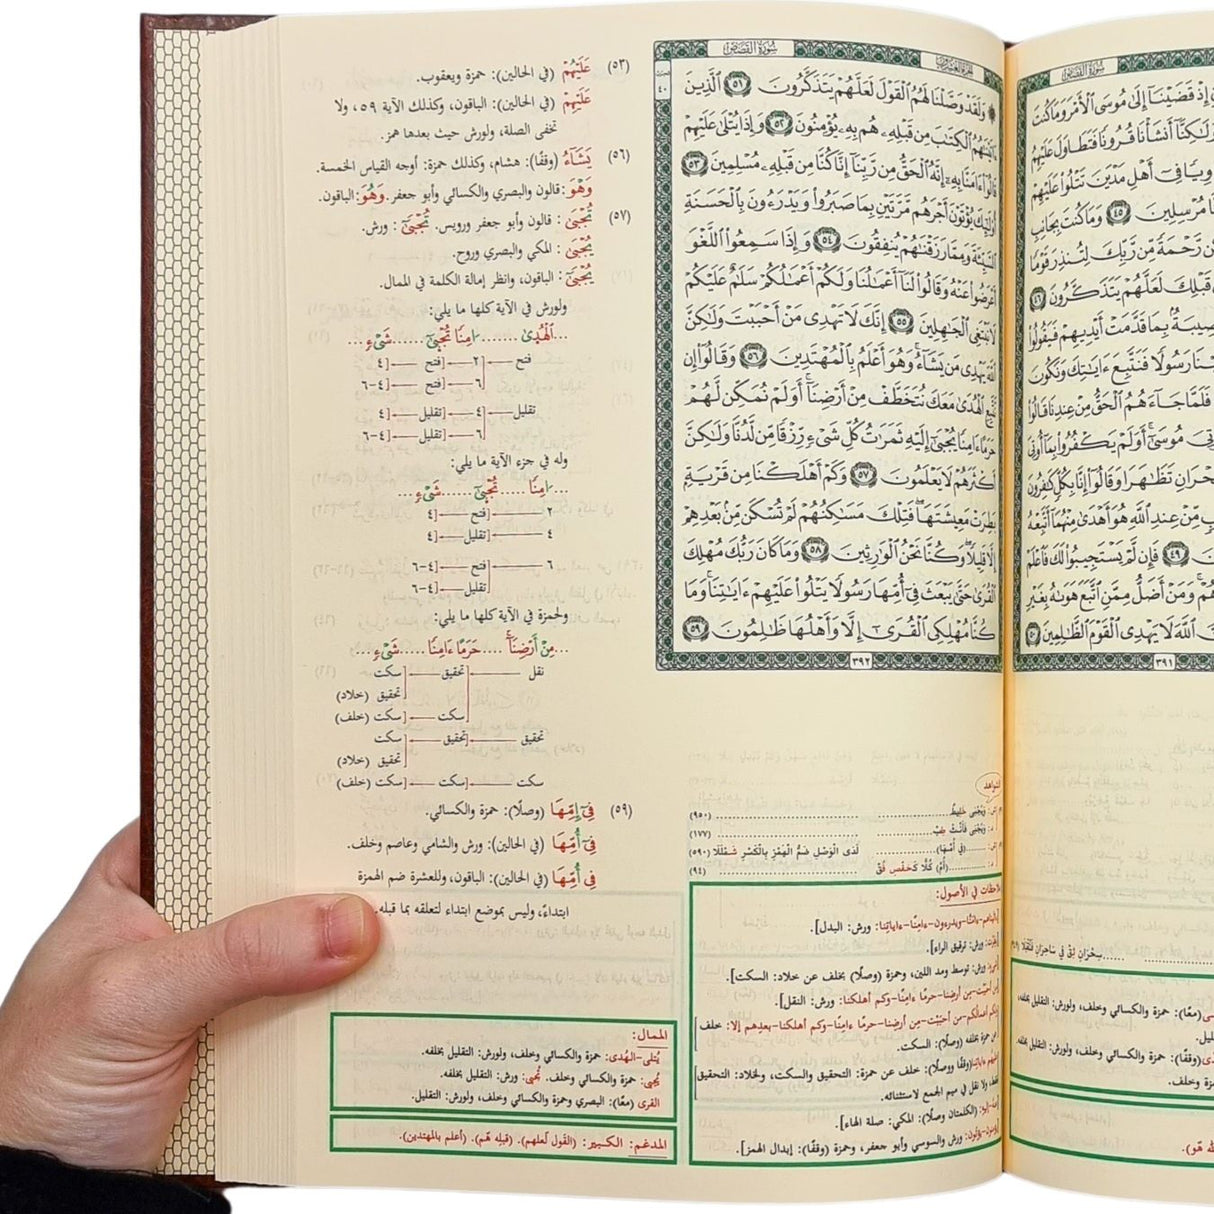 سورة القصص
الجزء العشرون
۞ وَلَقَدْ وَصَّلْنَا لَهُمُ ٱلْقَوْلَ لَعَلَّهُمْ يَتَذَكَّرُونَ ٥١ ٱلَّذِينَ
ءَاتَيْنَٰهُمُ ٱلْكِتَٰبَ مِن قَبْلِهِۦ هُم بِهِۦ يُؤْمِنُونَ ٥٢ وَإِذَا يُتْلَىٰ عَلَيْهِمْ
قَالُوٓا۟ ءَامَنَّا بِهِۦٓ إِنَّهُ ٱلْحَقُّ مِن رَّبِّنَآ إِنَّا كُنَّا مِن قَبْلِهِۦ مُسْلِمِينَ ٥٣
أُو۟لَٰٓئِكَ يُؤْتَوْنَ أَجْرَهُم مَّرَّتَيْنِ بِمَا صَبَرُوا۟ وَيَدْرَءُونَ بِٱلْحَسَنَةِ
ٱلسَّيِّئَةَ وَمِمَّا رَزَقْنَٰهُمْ يُنفِقُونَ ٥٤ وَإِذَا سَمِعُوا۟ ٱللَّغْوَ
أَعْرَضُوا۟ عَنْهُ وَقَالُوا۟ لَنَآ أَعْمَٰلُنَا وَلَكُمْ أَعْمَٰلُكُمْ سَلَٰمٌ عَلَيْكُمْ
لَا نَبْتَغِى ٱلْجَٰهِلِينَ ٥٥ إِنَّكَ لَا تَهْدِى مَنْ أَحْبَبْتَ وَلَٰكِنَّ
ٱللَّهَ يَهْدِى مَن يَشَآءُ وَهُوَ أَعْلَمُ بِٱلْمُهْتَدِينَ ٥٦ وَقَالُوٓا۟ إِن
نَّتَّبِعِ ٱلْهُدَىٰ مَعَكَ نُتَخَطَّفْ مِنْ أَرْضِنَآ أَوَلَمْ نُمَكِّن لَّهُمْ
حَرَمًا ءَامِنًا يُجْبَىٰٓ إِلَيْهِ ثَمَرَٰتُ كُلِّ شَىْءٍ رِّزْقًا مِّن لَّدُنَّا وَلَٰكِنَّ
أَكْثَرَهُمْ لَا يَعْلَمُونَ ٥٧ وَكَمْ أَهْلَكْنَا مِن قَرْيَةٍ
بَطِرَتْ مَعِيشَتَهَا فَتِلْكَ مَسَٰكِنُهُمْ لَمْ تُسْكَن مِّنۢ بَعْدِهِمْ
إِلَّا قَلِيلًا وَكُنَّا نَحْنُ ٱلْوَٰرِثِينَ ٥٨ وَمَا كَانَ رَبُّكَ مُهْلِكَ
ٱلْقُرَىٰ حَتَّىٰ يَبْعَثَ فِىٓ أُمِّهَا رَسُولًا يَتْلُوا۟ عَلَيْهِمْ ءَايَٰتِنَا وَمَا
كُنَّا مُهْلِكِى ٱلْقُرَىٰٓ إِلَّا وَأَهْلُهَا ظَٰلِمُونَ ٥٩
٣٩٢
(٥٣) عَلَيْهُمْ (في الحالين): حمزة ويعقوب.
عَلَيْهِمْ (في الحالين): الباقون، وكذلك الآية ٥٩، ولا
تخفى الصلة، ولورش حيث بعدها همز.
(٥٦) يَشَاءُ (وقفًا): هشام، وكذلك حمزة: أوجه القياس الخمسة.
وَهْوَ: قالون والبصري والكسائي وأبو جعفر. وَهُوَ: الباقون.
(٥٧) تُجْبَىٰ: قالون وأبو جعفر ورويس. تُجْبَىٰٓ: ورش.
يُجْبَىٰ: المكي والبصري وروح.
يُجْبَىٰٓ: الباقون، وانظر إمالة الكلمة في الممال.
ولورش في الآية كلها ما يلي:
...الْهُدَىٰ.......ءَامِنًا تُجْبَىٰٓ......شَىْءٍ...
فتح ٢ [فتح [٤
٦ [فتح [٤-٦
تقليل ٤ [تقليل [٤
٦ [تقليل [٤-٦
وله في جزء الآية ما يلي:
...ءَامِنًا....تُجْبَىٰٓ......شَىْءٍ...
٢ [فتح [٤
٤ [تقليل [٤
٦ [فتح [٤-٦
[تقليل [٤-٦
ولحمزة في الآية كلها ما يلي:
...مِنْ أَرْضِنَآ....حَرَمًا ءَامِنًا.....شَىْءٍ...
نقل تحقيق سكت
تحقيق (خلاد)
سكت [سكت (خلف)
تحقيق [تحقيق سكت
تحقيق (خلاد)
سكت [سكت [سكت (خلف)
(٥٩) فِىٓ إِمِّهَا (وصلًا): حمزة والكسائي.
فِىٓ أُمِّهَا (في الحالين): ورش والشامي وعاصم وخلف.
فِى أُمِّهَا (في الحالين): الباقون، وللعشرة ضم الهمزة
ابتداءً، وليس بموضع ابتداء لتعلقه بما قبله.
الممال:
يُتلى-الهُدى: حمزة والكسائي وخلف، ولورش: التقليل بخلفه.
يُجبى: حمزة والكسائي وخلف. تُجبى: ورش: التقليل بخلفه.
القرى (معًا): البصري وحمزة والكسائي وخلف، ولورش: التقليل.
المدغم: الكبير: (القول لَعلهم). (قبله هُم). (أعلم بالمهتدين).
الشواهد
وَيُجْبَى خَلِيطٌ (٩٥٠)
وَيُجْبَى فَأَنَّثَ طِبْ (١٧٧)
(فِي أُمِّهَا) لَدَى الْوَصْلِ ضَمُّ الْهَمْزِ بِالْكَسْرِ شَمْلَلَا (٥٩٠)
(أُمُّ) كُلًّا كَحَفْصٍ فُقْ (٩٤)
ملاحظات في الأصول:
ويدرءون-ءامنًا-ءاياتنا: ورش: البدل].
ورش: ترقيق الراء].
ورش: توسط ومد اللين، وحمزة (وصلًا) بخلف عن خلاد: السكت].
من أرضنا-حرمًا ءامنًا-وكم أهلكنا: ورش: النقل].
من أرضنا-حرمًا ءامنًا-وكم أهلكنا-بعدِهِم إلا: خلف
عن حمزة بخلفه (وصلًا): السكت.
(وقفًا ووصلًا): خلف عن حمزة: التحقيق والسكت، ولخلاد: التحقيق
ولا نقل في ميم الجمع لاستثنائه.
(الكلمتان وصلًا): المكي: صلة الهاء].
ورش والسوسي وأبو جعفر، وحمزة (وقفًا): إبدال الهمز].
سورة القصص
إِذْ قَضَيْنَآ إِلَىٰ مُوسَى ٱلْأَمْرَ وَمَا كُنتَ
وَلَٰكِنَّآ أَنشَأْنَا قُرُونًا فَتَطَاوَلَ عَلَيْهِمُ
ثَاوِيًا فِىٓ أَهْلِ مَدْيَنَ تَتْلُوا۟ عَلَيْهِمْ
مُرْسِلِينَ ٤٥ وَمَا كُنتَ بِجَانِبِ
رَّحْمَةً مِّن رَّبِّكَ لِتُنذِرَ قَوْمًا
قَبْلِكَ لَعَلَّهُمْ يَتَذَكَّرُونَ ٤٦
مُّصِيبَةٌۢ بِمَا قَدَّمَتْ أَيْدِيهِمْ فَيَقُولُوا۟
رَسُولًا فَنَتَّبِعَ ءَايَٰتِكَ وَنَكُونَ
فَلَمَّا جَآءَهُمُ ٱلْحَقُّ مِنْ عِندِنَا قَالُوا۟
مُوسَىٰٓ أَوَلَمْ يَكْفُرُوا۟ بِمَآ أُوتِىَ
سِحْرَانِ تَظَٰهَرَا وَقَالُوٓا۟ إِنَّا بِكُلٍّ كَٰفِرُونَ
مِّنْ عِندِ ٱللَّهِ هُوَ أَهْدَىٰ مِنْهُمَآ أَتَّبِعْهُ
٤٩ فَإِن لَّمْ يَسْتَجِيبُوا۟ لَكَ فَٱعْلَمْ
وَمَنْ أَضَلُّ مِمَّنِ ٱتَّبَعَ هَوَىٰهُ بِغَيْرِ
ٱللَّهَ لَا يَهْدِى ٱلْقَوْمَ ٱلظَّٰلِمِينَ ٥٠
٣٩١
سِحْرَانِ ثِقْ فِي سَاحِرَانِ فَتُقْبَلَا
(معًا): حمزة والكسائي وخلف، ولورش: التقليل بخلفه.
(وقفًا): حمزة والكسائي وخلف، ولورش: التقليل بخلفه.
حمزة وخلف.